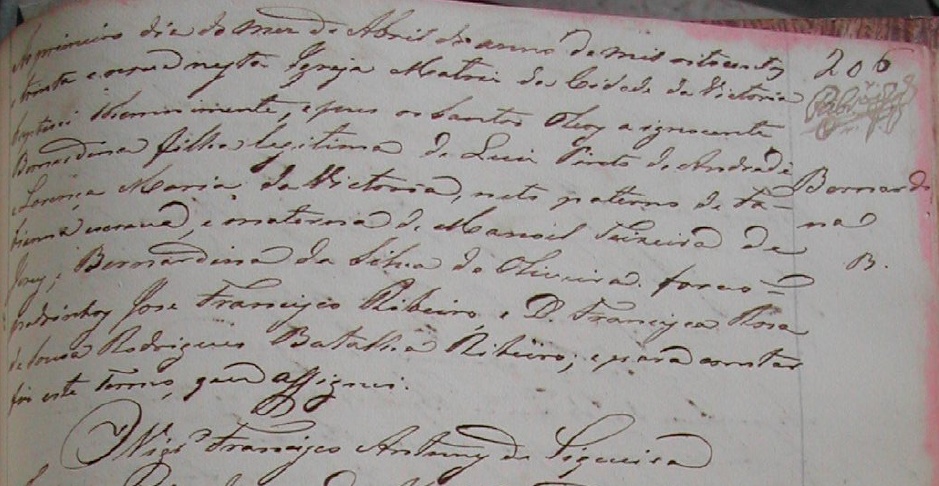 206
Ao primeiro dia do mez de Abril do anno de mil oitocentos
e trinta e nove nesta Igreja Matriz da Cidade da Victoria
baptisei solemnemente, e pus os Santos Oleos a ignocente
Bernardina filha legitima de Luis Pinto de Andrade
e Lorença Maria da Victoria, neta paterna de Fa-
biana escrava, e materna de Manoel Teixeira de
Jesus, e Bernardina da Silva de Oliveira. forão
padrinhos Jose Francisco Ribeiro, e D. Francisca Rosa
de Sousa Rodrigues Batalha Ribeiro; e para constar
fis este termo, que assignei.
Vigr.º Francisco Antunes de Siqueira
Bernardi
na
B.